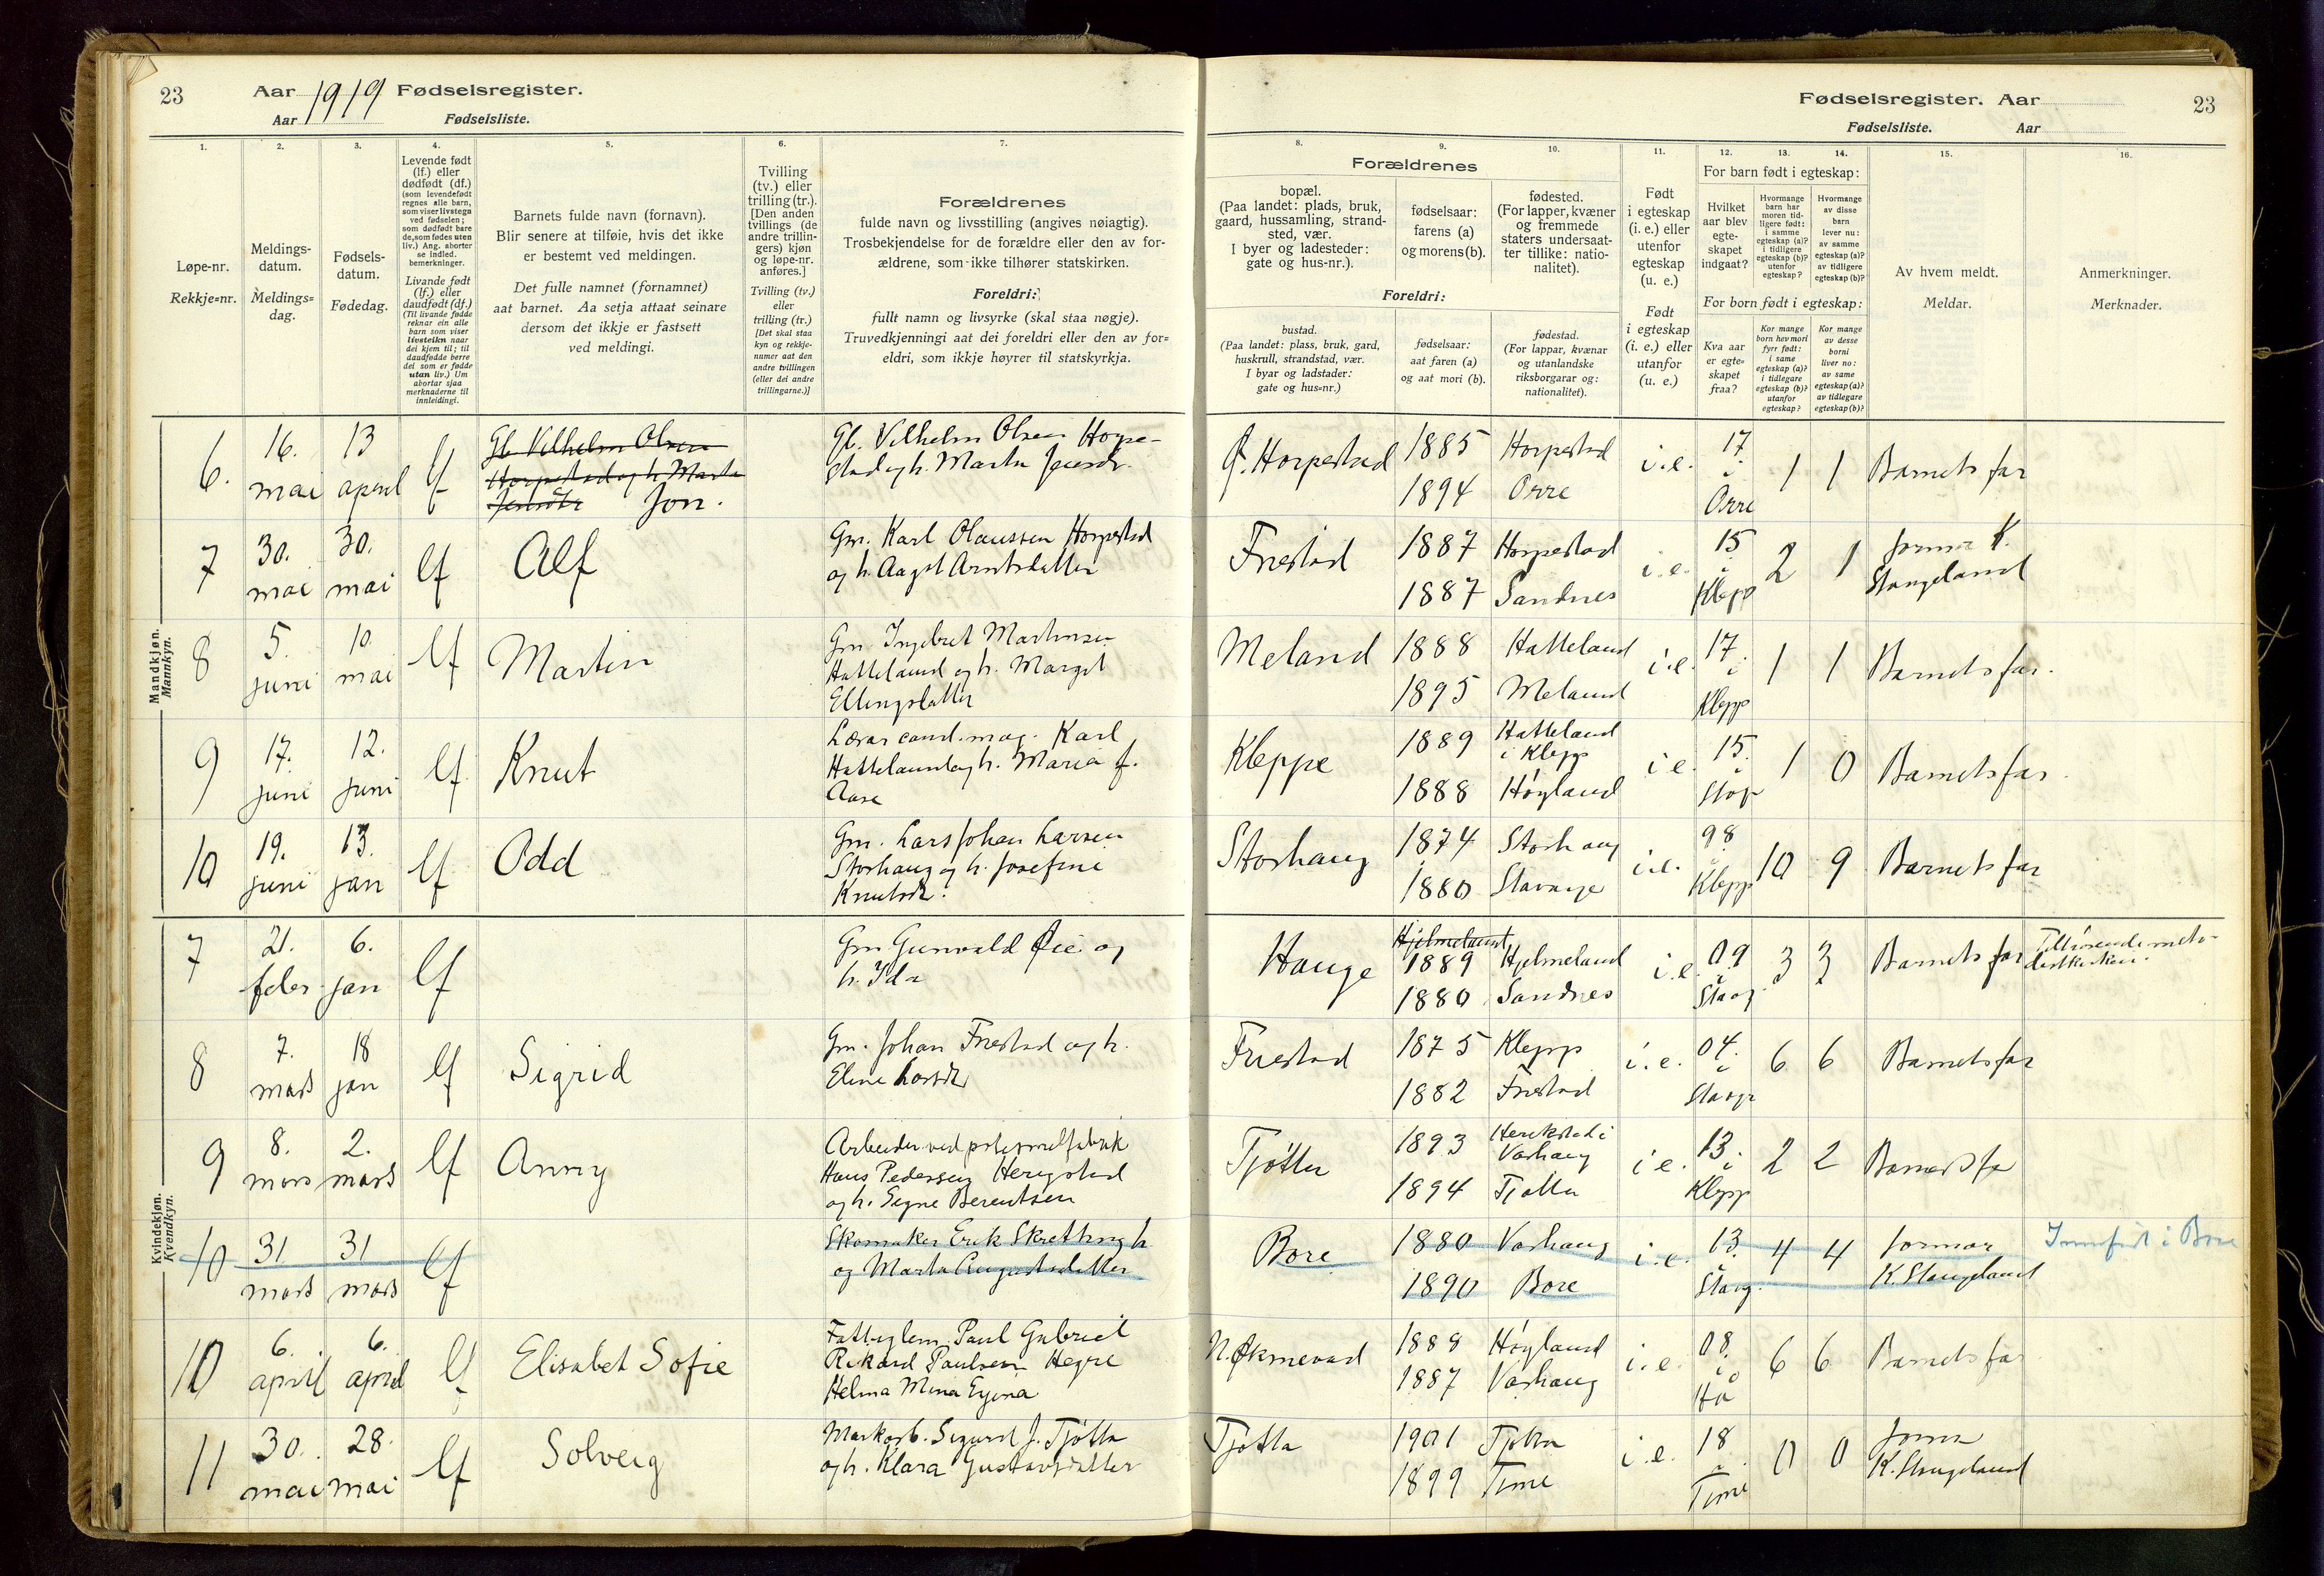 23
Aar 1919 Fødselsregister.
Aar
Fødselsliste.
1.
2.
3.
4.
5.
6.
7.
Løpe-nr.
Rekkje=nr.
Meldings-
datum.
Meldings=
dag.
Fødsels-
datum.
Fødedag.
Levende født
(lf.) eller
dødfødt (df.)
(som levendefødt
regnes alle barn,
som viser livstegn
ved fødselen;
som dødfødt bare
de, som fødes uten
liv.) Ang. aborter
se indled.
bemerkninger.
Livande født
(lf.) eller
daudfødt (df.)
(Til livande fødde
reknar ein alle
barn som viser
livsteikn naar
dei kjem til; til
daudfødde berre
dei som er fødde
utan liv.) Um
abortar sjaa
merknaderne til
innleidingi.
Barnets fulde navn (fornavn).
Blir senere at tilføie, hvis det ikke
er bestemt ved meldingen.
Det fulle namnet (fornamnet)
aat barnet. Aa setja attaat seinare
dersom det ikkje er fastsett
ved meldingi.
Tvilling
(tv.) eller
trilling (tr.).
[Den anden
tvillings (de
andre trillin-
gers) kjøn
og løpe-nr.
anføres.]
Tvilling (tv.)
eller
trilling (tr.)
[Det skal staa
kyn og rekkje-
numer aat den
andre tvillingen
(eller dei andre
trillingarne.)]
Forældrenes
fulde navn og livsstilling (angives nøiagtig).
Trosbekjendelse for de forældre eller den av for-
ældrene, som ikke tilhører statskirken.
Foreldri:
fullt namn og livsyrke (skal staa nøgje).
Truvedkjenningi aat dei foreldri eller den av for=
eldri, som ikkje høyrer til statskyrkja.
Mandkjøn.
Mannkyn.
6.
16.
mai
13
april
lf
Gb. Vilhelm Olsen
Horpestad og h. Marta
Jon.
Gb. Vilhelm Olsen Horpe-
stad og h. Marta Jensdr.
7
30.
mai
30.
mai
lf
Alf
Gm. Karl Olaussen Horpestad
og h. Aagot Arntsdatter
8
5.
juni
10.
mai
lf
Martin
Gm Ingebret Martinsen
Hatteland og h. Margit
Ellingsdatter
9
17.
juni
12.
juni
lf
Knut
Lærar cand. mag. Karl
Hatteland og h. Maria f.
Aase
10
19.
juni
13.
jan
lf
Odd
Gm. Lars Johan Larsen
Storhaug og h. Josefine
Knutsdr.
Kvindekjøn.
Kvendkyn.
7
21.
febr
6.
jan
lf
Gm Gunvald Øie og
h. Ida
8
7.
mars
18
jan
lf
Sigrid
Gm. Johan Friestad og h.
Eline Larsdr
9
8.
mars
2.
mars
lf
Anny
Arbeider ved potetmelfabrik
Hans Pedersen Herigstad
og h. Signe Berentsen
10
31.
mars
31
mars
lf
Skomaker Erik Skretting h.
og Marta Augustsdatter
10
6.
april
6.
april
lf
Elisabet Sofie
Fattiglem Paul Gabriel
Rikard Paulsen Hegre
Helma Mina Egina
11
30.
mai
28.
mai
lf
Solveig
Markarb. Sigurd J. Tjøtta
og h. Klara Gustavsdatter
Fødselsregister. Aar
23
Fødselsliste.
Aar
8.
9.
10.
11.
12.
13.
14.
15.
16.
Forældrenes
bopæl.
(Paa landet: plads, bruk,
gaard, hussamling, strand-
sted, vær.
I byer og ladesteder:
gate og hus-nr.).
fødselsaar:
farens (a)
og morens (b).
fødested.
(For lapper, kvæner
og fremmede
staters undersaat-
ter tillike: natio-
nalitet).
Foreldri:
bustad.
(Paa landet: plass, bruk, gard,
huskrull, strandstad, vær.
I byar og ladstader:
gate og hus=nr.)
fødselsaar:
aat faren (a)
og aat mori (b).
fødestad.
(For lappar, kvænar
og utanlandske
riksborgarar og:
nationalitet).
Født
i egteskap
(i. e.) eller
utenfor
egteskap
(u. e.)
Født
i egteskap
(i. e.) eller
utanfor
(u. e.)
For barn født i egteskap:
Hvilket
aar blev
egte-
skapet
indgaat?
Hvormange
barn har
moren tid-
ligere født:
i samme
egteskap (a)?
i tidligere
egteskap (b)?
utenfor
egteskap?
Hvormange
av disse
barn
lever nu:
av samme
egteskap (a)?
av tidligere
egteskap (b)?
For born født i egteskap:
Kva aar
er egte=
skapet
fraa?
Kor mange
born hev mori
fyrr født:
i same
egteskap (a)?
i tidlegare
egteskap (b)?
utanfor
egteskap?
Kor mange
av desse
borni
liver no:
av same
egteskap (a)?
av tidlegare
egteskap (b)?
Av hvem meldt.
Meldar.
Anmerkninger.
Merknader.
Ø. Horpestad
1885
1894
Horpestad
Orre
i.e.
17
i
Orre
1
1
Barnets far
Friestad
1887
1887
Horpestad
Sandnes
i.e.
15
i
Klepp
2
1
jormor K.
Stangeland
Meland
1888
1895
Hatteland
Meland
i.e.
17.
i
Klepp
1
1
Barnets far.
Kleppe
1889
1888
Hatteland
i Klepp
Høyland
i e.
15.
i
1
0
Barnets far
Storhaug
1874
1880
Storhaug
i.e.
98
i
Klepp
10
9
Barnets far
Hauge
Hjelmeland
1889
1880
Hjelmeland
Sandnes
i.e.
09
i
Stavg.
3
3
Barnets far
Tilhørende meto-
distkirken.
Friestad
1875
1882
Klepp
Friestad
i.e.
04.
i
6
6
Barnets far
Tjøtta
1893
1894
Herikstad i
Varhaug
Tjøtta
i e.
13.
i
Klepp
2
2
Barnets fa
Bore
1880
1890
Varhaug
Bore
i.e.
13.
i
Stavg.
4
4
Jormor
K. Stangeland
Innført i Bore
N. Øksnevad
1888
1887
Høyland
Varhaug
i.e.
08.
i
Hå
6
6
Barnets far
Tjøtta
1901
1899
Tjøtta
Time
i.e.
18
i
Time
0
0
K. Stangeland